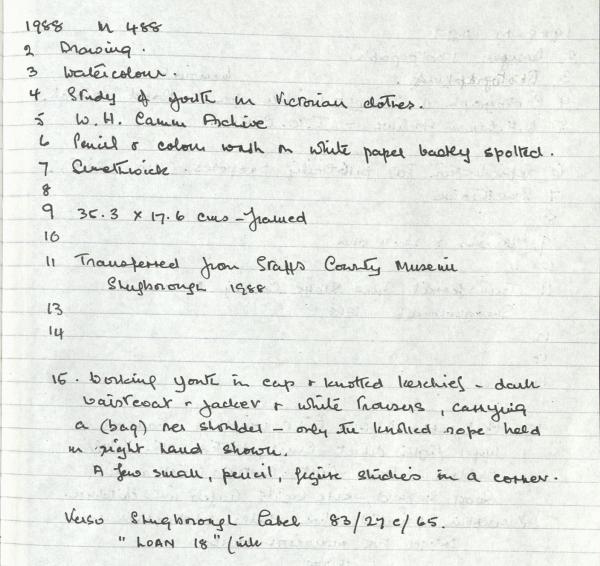 1988 M 488
2 Drawing.
3 Watercolour.
4 Study of youth in Victorian clothes.
5 W.H. Camm Archive
6 Pencil & colour wash on white paper badly spotted.
7 Smethwick
8
9 35.3 x 17.6 cms - framed
10
11 Transferred from Staffs County Museum
Shugborough 1988
13
14
15. Working youth in cap & knotted kerchief - dark
waistcoat & jacket & white trousers, carrying
a (bag) over shoulder - only the knotted rope held
in right hand shown.
A few small, pencil, figure studies in a corner.
Verso Shugborough Label 83/27c/65.
" LOAN 18" (ink